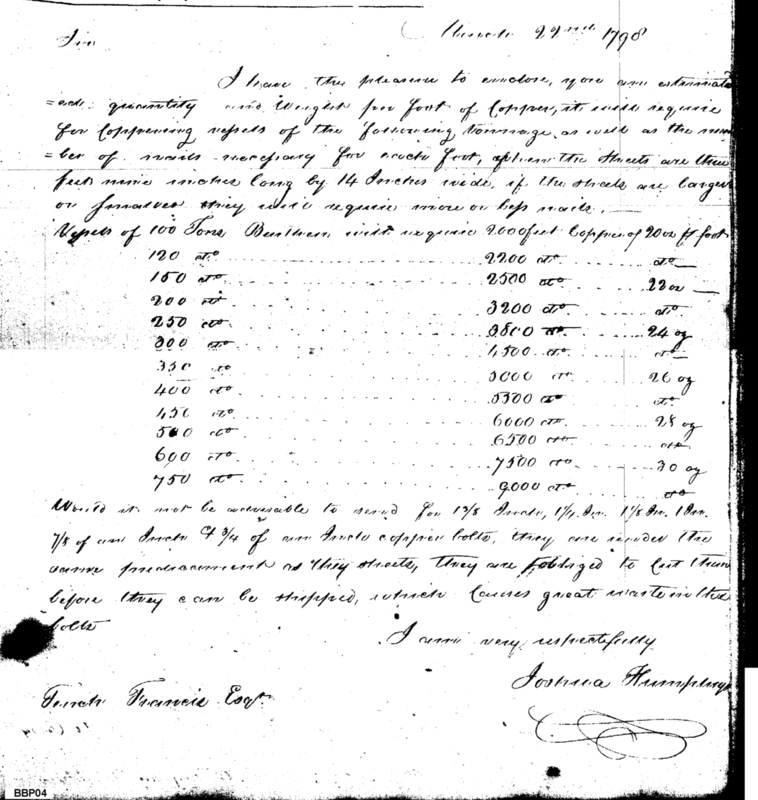 Sir March 22nd 1798
I have the pleasure to enclose, you an estimat
=ed quantity and Weight per foot of Copper, it will require
for Coppering vessels of the following tonnage as well as the num
=ber of nails necessary for each foot, when the sheets are three
feet nine inches long by 14 Inches wide, if the sheets are larger
or smaller they will require more or less nails. —
Vessels of 100 Tons Burthen will require 2000 feet Copper of 20 oz pr foot
120 do 2200 do do
150 do 2500 do 22 oz —
200 do 3200 do do
250 do 3800 do 24 oz
300 do 4500 do do
350 do 5000 do 26 oz
400 do 5500 do do
450 do 6000 do 28 oz
500 do 6500 do do
600 do 7500 do 30 oz
750 do 9000 do do
Would it not be adviseable to send for 1 3/8 Inch, 1 1/4 In. 1 1/8 In. 1 In.
7/8 of an Inch & 3/4 of an Inch copper bolts, they are under the
same predicament as they sheets, they are obbliged to cut them
before they can be shipped, which Causes great waste in the
bolts
I am very respectfully
Joshua Humphreys
Tench Francis Esqr.
BBP04